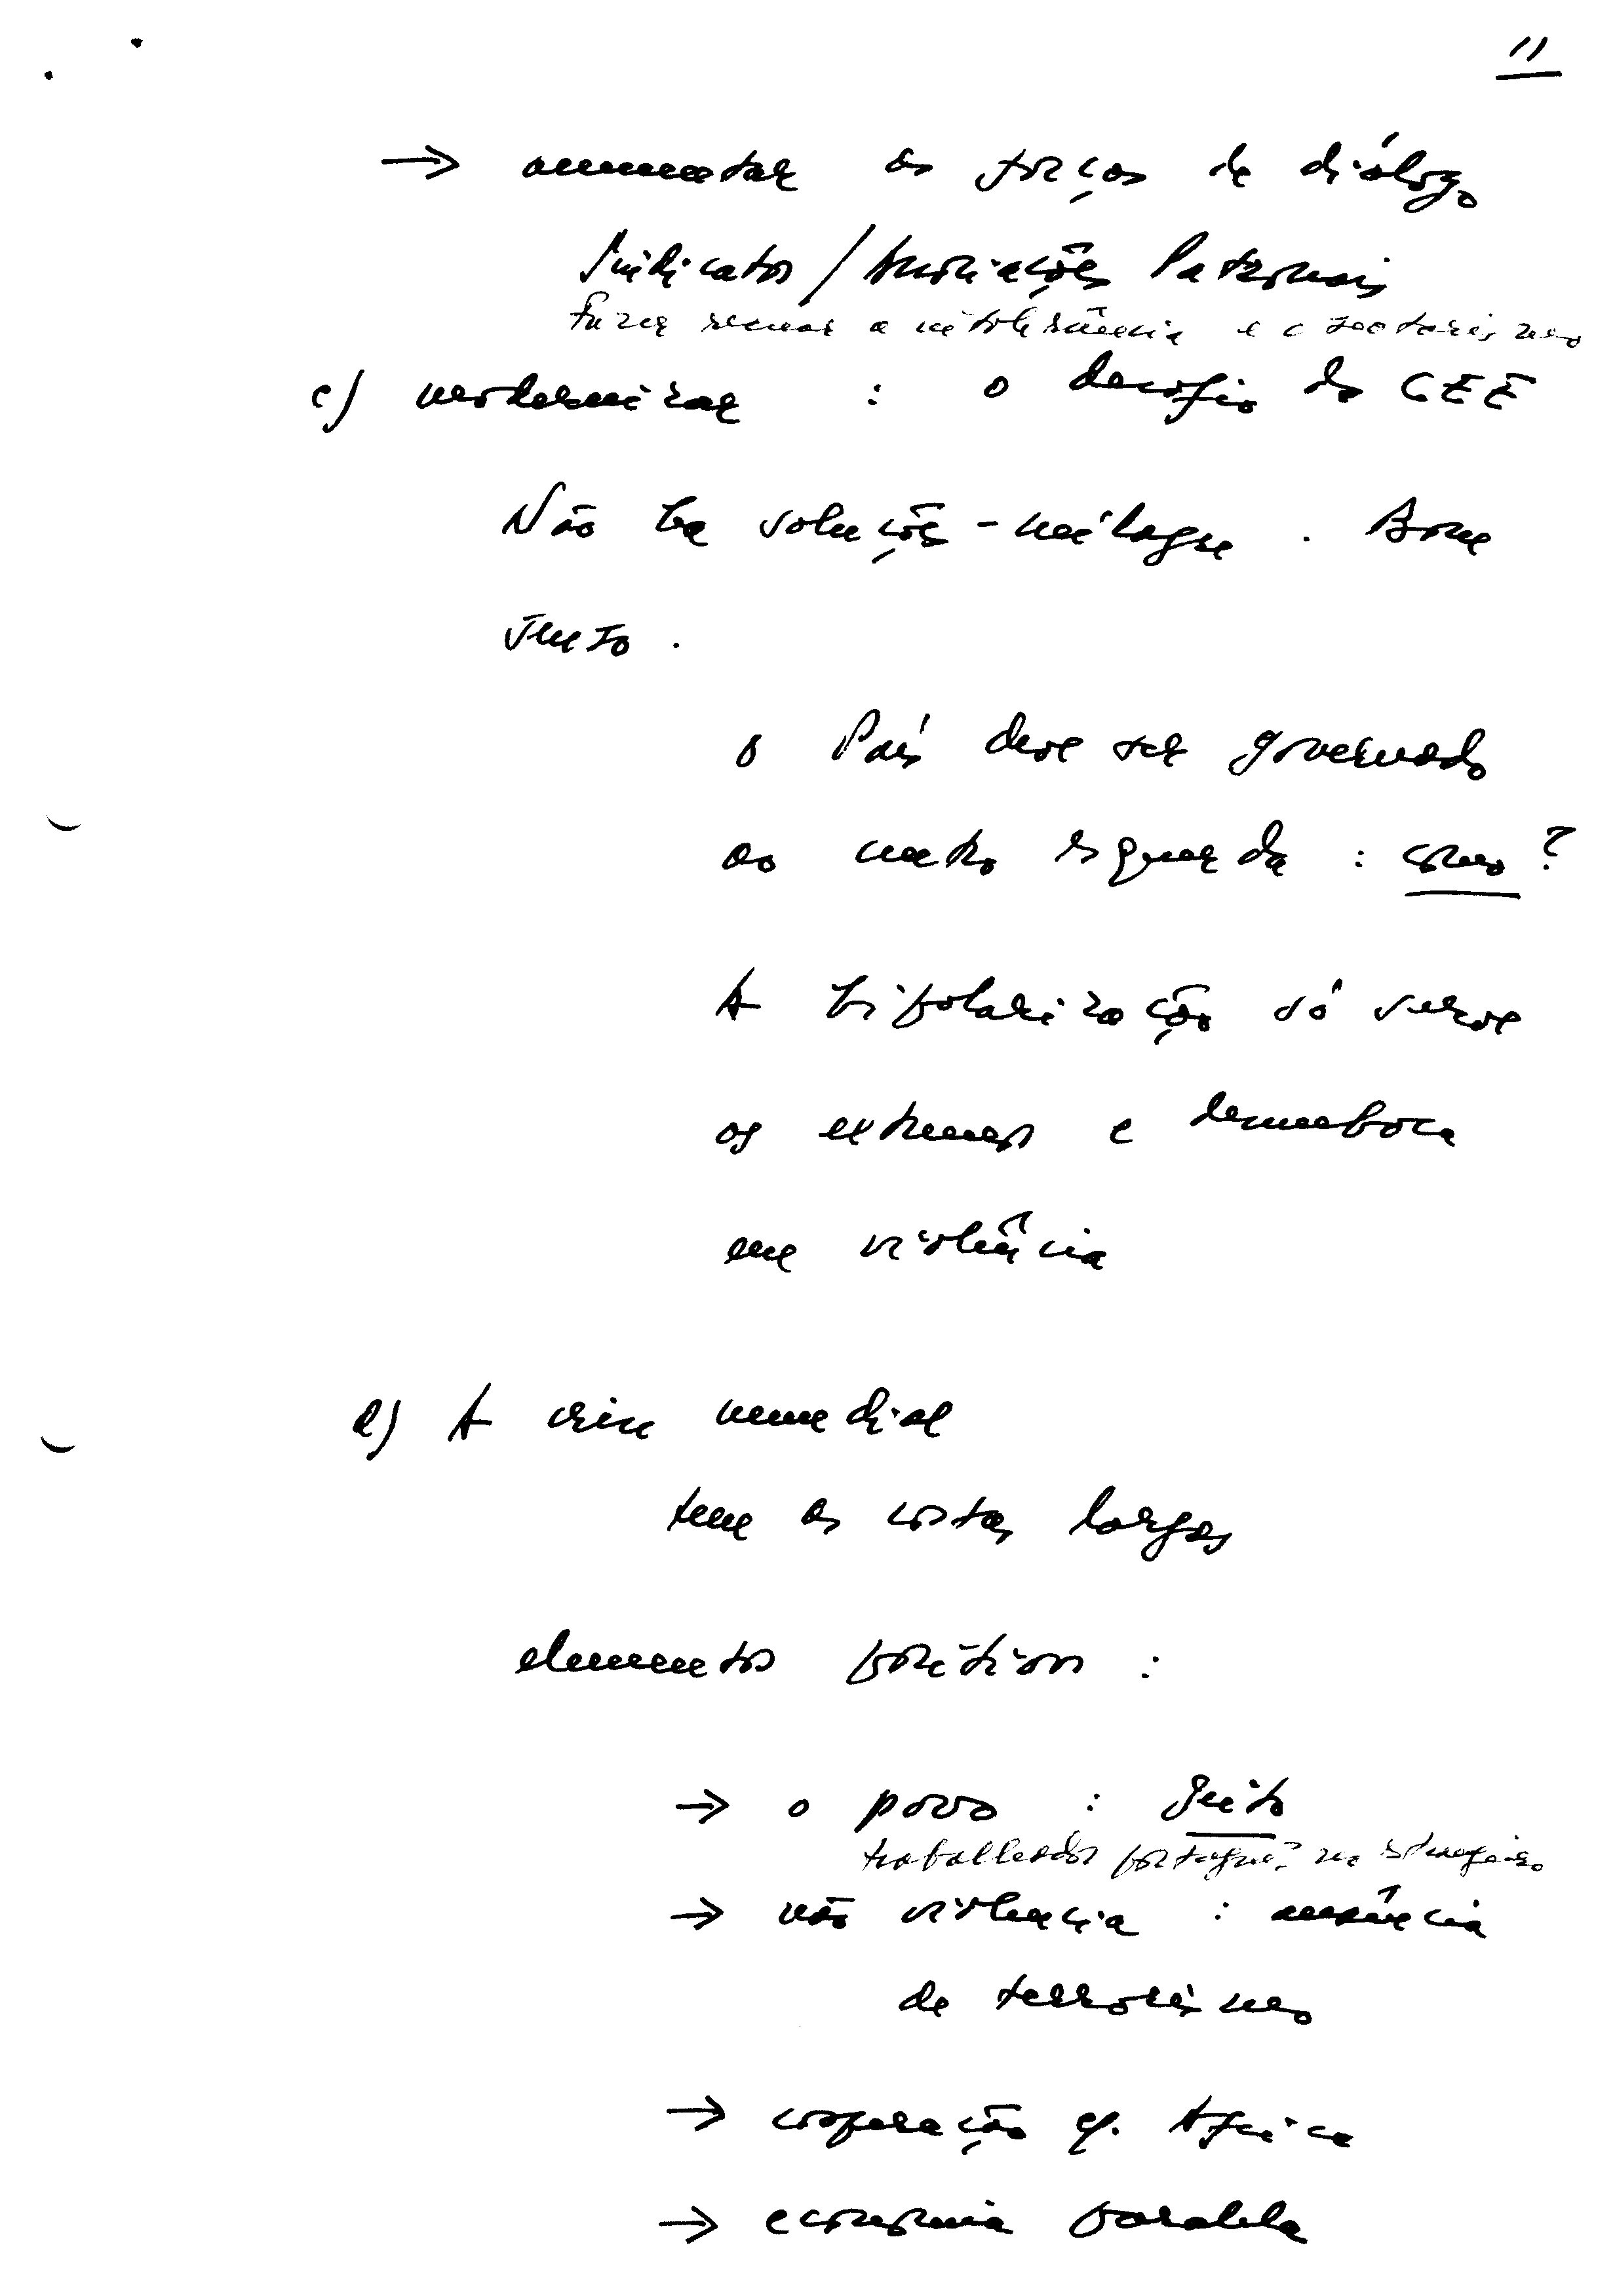 11
→ aumentar as forças de diálogo
Sindicatos / Associações Patronais
Fazer recuar a intolerância e o sectarismo
c) modernizar : o desafio da CEE
Não há soluções-milagre. Bom
senso.
o País deve ser governado
ao centro esquerda : como ?
A bipolarização só serve
os extremos e desemboca
em violência
d) A crise mundial
tem as costas largas
elementos positivos :
→ o povo : jeito
trabalhador português no estrangeiro
→ não violência : ausência
de terrorismo
→ cooperação c/. Africa
→ economia paralela